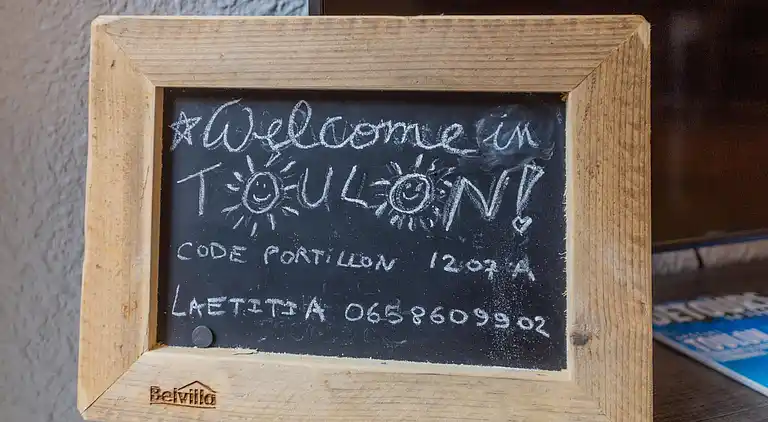 Welcome in
TOULON!
CODE PORTILLON 1207A
LAETITIA 0658609902
Belvilla